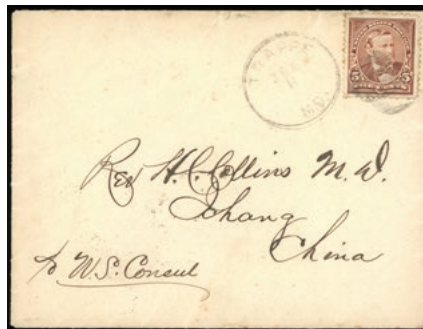 TRAPPE
MD.
5 5
Rev H. C. Collins M.D.
Ichang
China
% U.S. Consul